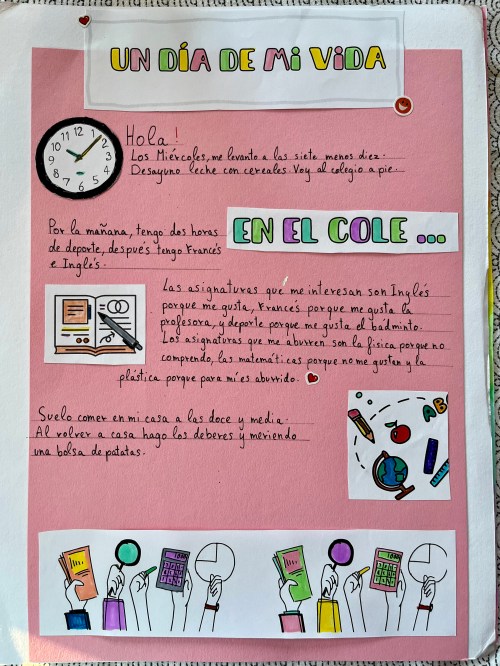 UN DÍA DE Mi ViDA
12
11
1
10
2
9
3
8
4
7
5
6
Hola!
Los Miércoles, me levanto a las siete menos diez.
Desayuno leche con cereales. Voy al colegio a pie.
Por la mañana, tengo dos horas
de deporte, después tengo Francés
e Inglés.
EN EL COLE ...
Las asignaturas que me interesan son Inglés
porque me gusta, Francés porque me gusta la
profesora, y deporte porque me gusta el bádminto.
Los asignaturas que me aburren son la física porque no
comprendo, las matemáticas porque no me gustan y la
plástica porque para mí es aburrido.
AB
Suelo comer en mi casa a las doce y media.
Al volver a casa hago los deberes y meriendo
una bolsa de patatas.